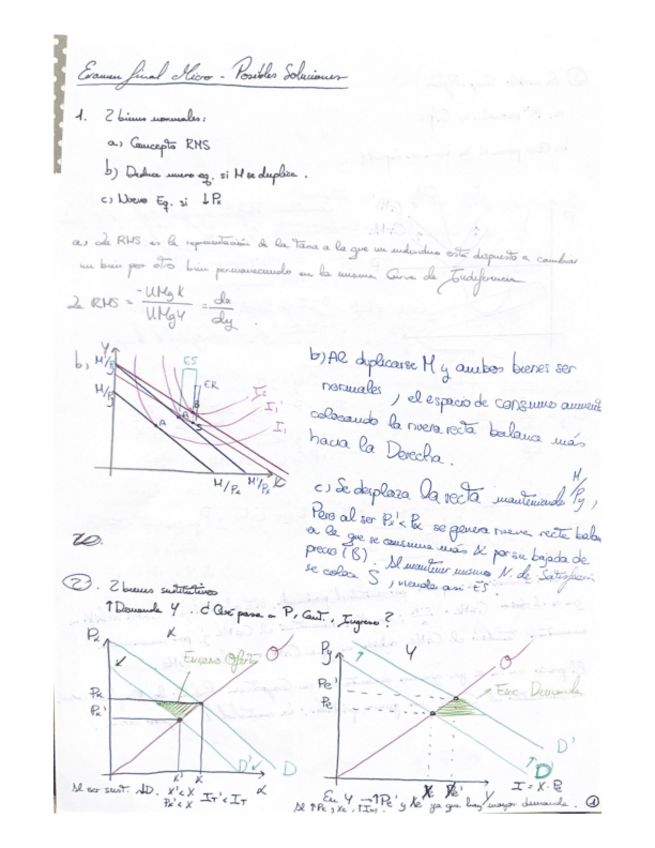 Examen final Micro - Posibles Soluciones
1. 2 bienes normales:
a) Concepto RMS
b) Deduce nuevo eq. si M se duplica.
c) Nuevo Eq. si ↓Px
a) La RMS es la representación de la tasa a la que un individuo está dispuesto a cambiar
un bien por otro bien permaneciendo en la misma Curva de Indiferencia
RMS = -UMgX / UMgY = dx / dy.
b)
Y
ES
ER
B
A
S
I1'
I1
M/Px
M'/Px
X
b) Al duplicarse M y ambos bienes ser
normales, el espacio de consumo aumenta
colocando la nueva recta balance más
hacia la Derecha.
c) Se desplaza la recta manteniendo M/Py,
Pero al ser Px' < Px se genera nueva recta balan
a la que se consume más X por su bajada de
precio (B). Al mantener mismo N. de Satisfacción
se coloca S, siendo así ES.
2. 2 bienes sustitutivos
↑Demanda Y. ¿Qué pasa a P, Cant., Ingreso?
Px
X
Exceso Oferta
O
Px
Px'
D'
D
X'
X
X
Al ser sust. ↓D. X' < X
Px' < Px
IT' < IT
Py
Y
O
Pe'
Pe
Exc. Demanda
D'
D
Y
I = X · Pe
En Y → ↑Pe' y Xe' ya que hay mayor demanda.
Al ↑Pe, Xe,
1